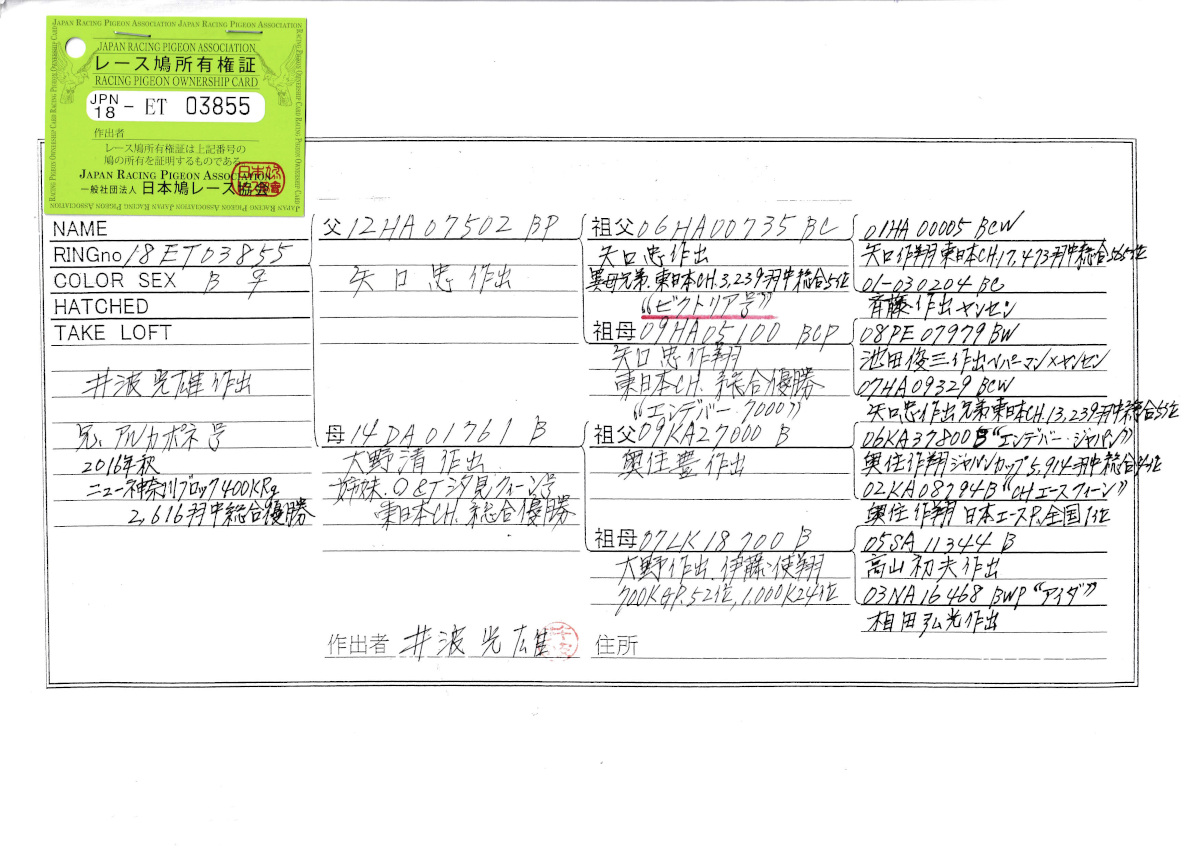 JAPAN RACING PIGEON ASSOCIATION JAPAN RACING PIGEON ASSOCIATION
JAPAN RACING PIGEON ASSOCIATION
レース鳩所有権証
RACING PIGEON OWNERSHIP CARD
JPN 18 - ET 03855
作出者
レース鳩所有権証は上記番号の
鳩の所有を証明するものである
JAPAN RACING PIGEON ASSOCIATION
一般社団法人 日本鳩レース協会
NAME
RINGno 18ET03855
COLOR SEX B ♀
HATCHED
TAKE LOFT
井波光雄作出
兄、アルカポネ号
2016年秋
ニュー神奈川ブロック400KRg
2,616羽中総合優勝
父 12HA07502 BP
矢口忠作出
母 14DA01761 B
大野清作出
姉妹、O&T汐見クィーン号
東日本CH.総合優勝
作出者 井波光雄
祖父 06HA00735 BC
矢口忠作出
異母兄弟、東日本CH.3,239羽中総合5位
“ビクトリア号”
祖母 09HA05100 BCP
矢口忠作翔
東日本CH.総合優勝
“エンデバー・7000”
祖父 09KA27000 B
奥住豊作出
祖母 07LK18700 B
大野作出、伊藤使翔
700KGP.52位,1,000K24位
住所
01HA00005 BCW
矢口作翔東日本CH.17,473羽中総合565位
01-030204 BC
斉藤作出ヤンセン
08PE07979 BW
池田俊三作出ヘルパーマン×ヤンセン
07HA09329 BCW
矢口忠作出兄弟東日本CH.13,239羽中総合5位
06KA37800B“エンデバー・ジャパン”
奥住作翔ジャパンカップ5,914羽中総合4位
02KA08794B“CHエースクィーン”
奥住作翔 日本エースP.全国1位
05SA11344 B
高山初夫作出
03NA16468 BWP“アイダ”
相田弘光作出